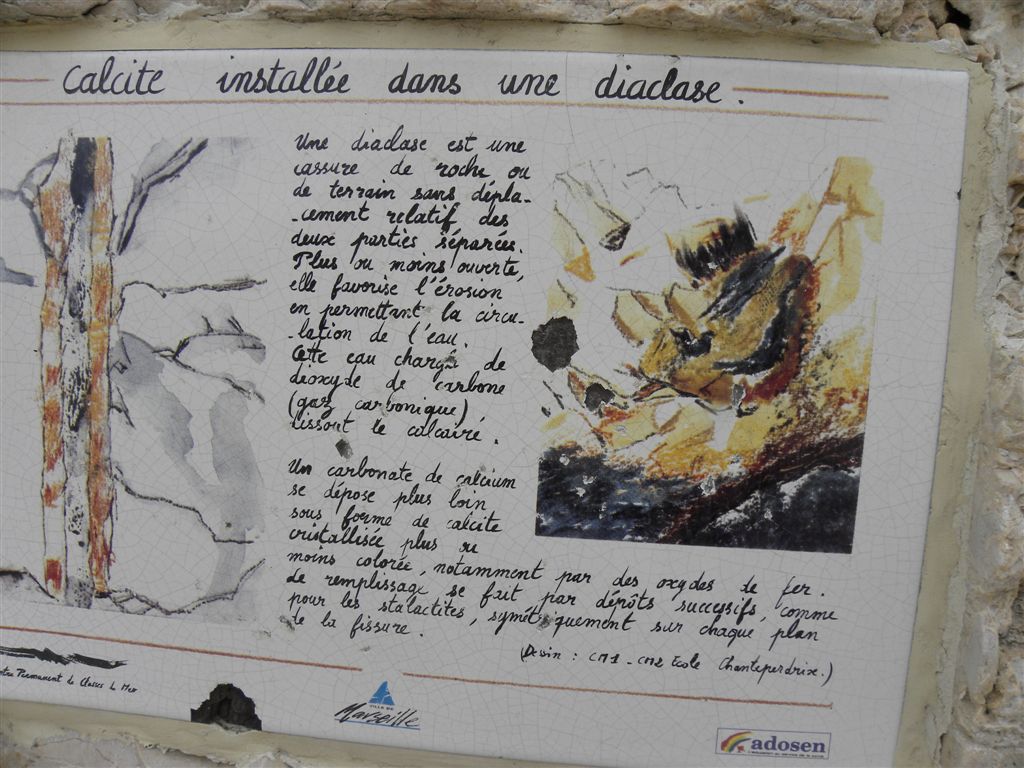 Calcite installée dans une diaclase.
Une diaclase est une
cassure de roche ou
de terrain sans dépla-
-cement relatif des
deux parties séparées.
Plus ou moins ouverte,
elle favorise l'érosion
en permettant la circu-
-lation de l'eau.
Cette eau chargée de
dioxyde de carbone
(gaz carbonique)
dissout le calcaire.
Un carbonate de calcium
se dépose plus loin
sous forme de calcite
cristallisée plus ou
moins colorée, notamment par des oxydes de fer.
Le remplissage se fait par dépôts successifs, comme
pour les stalactites, symétriquement sur chaque plan
de la fissure.
(Dessin : CM1 - CM2 Ecole Chanteperdrix.)
Permanent de Classes de Mer
VILLE DE
Marseille
adosen